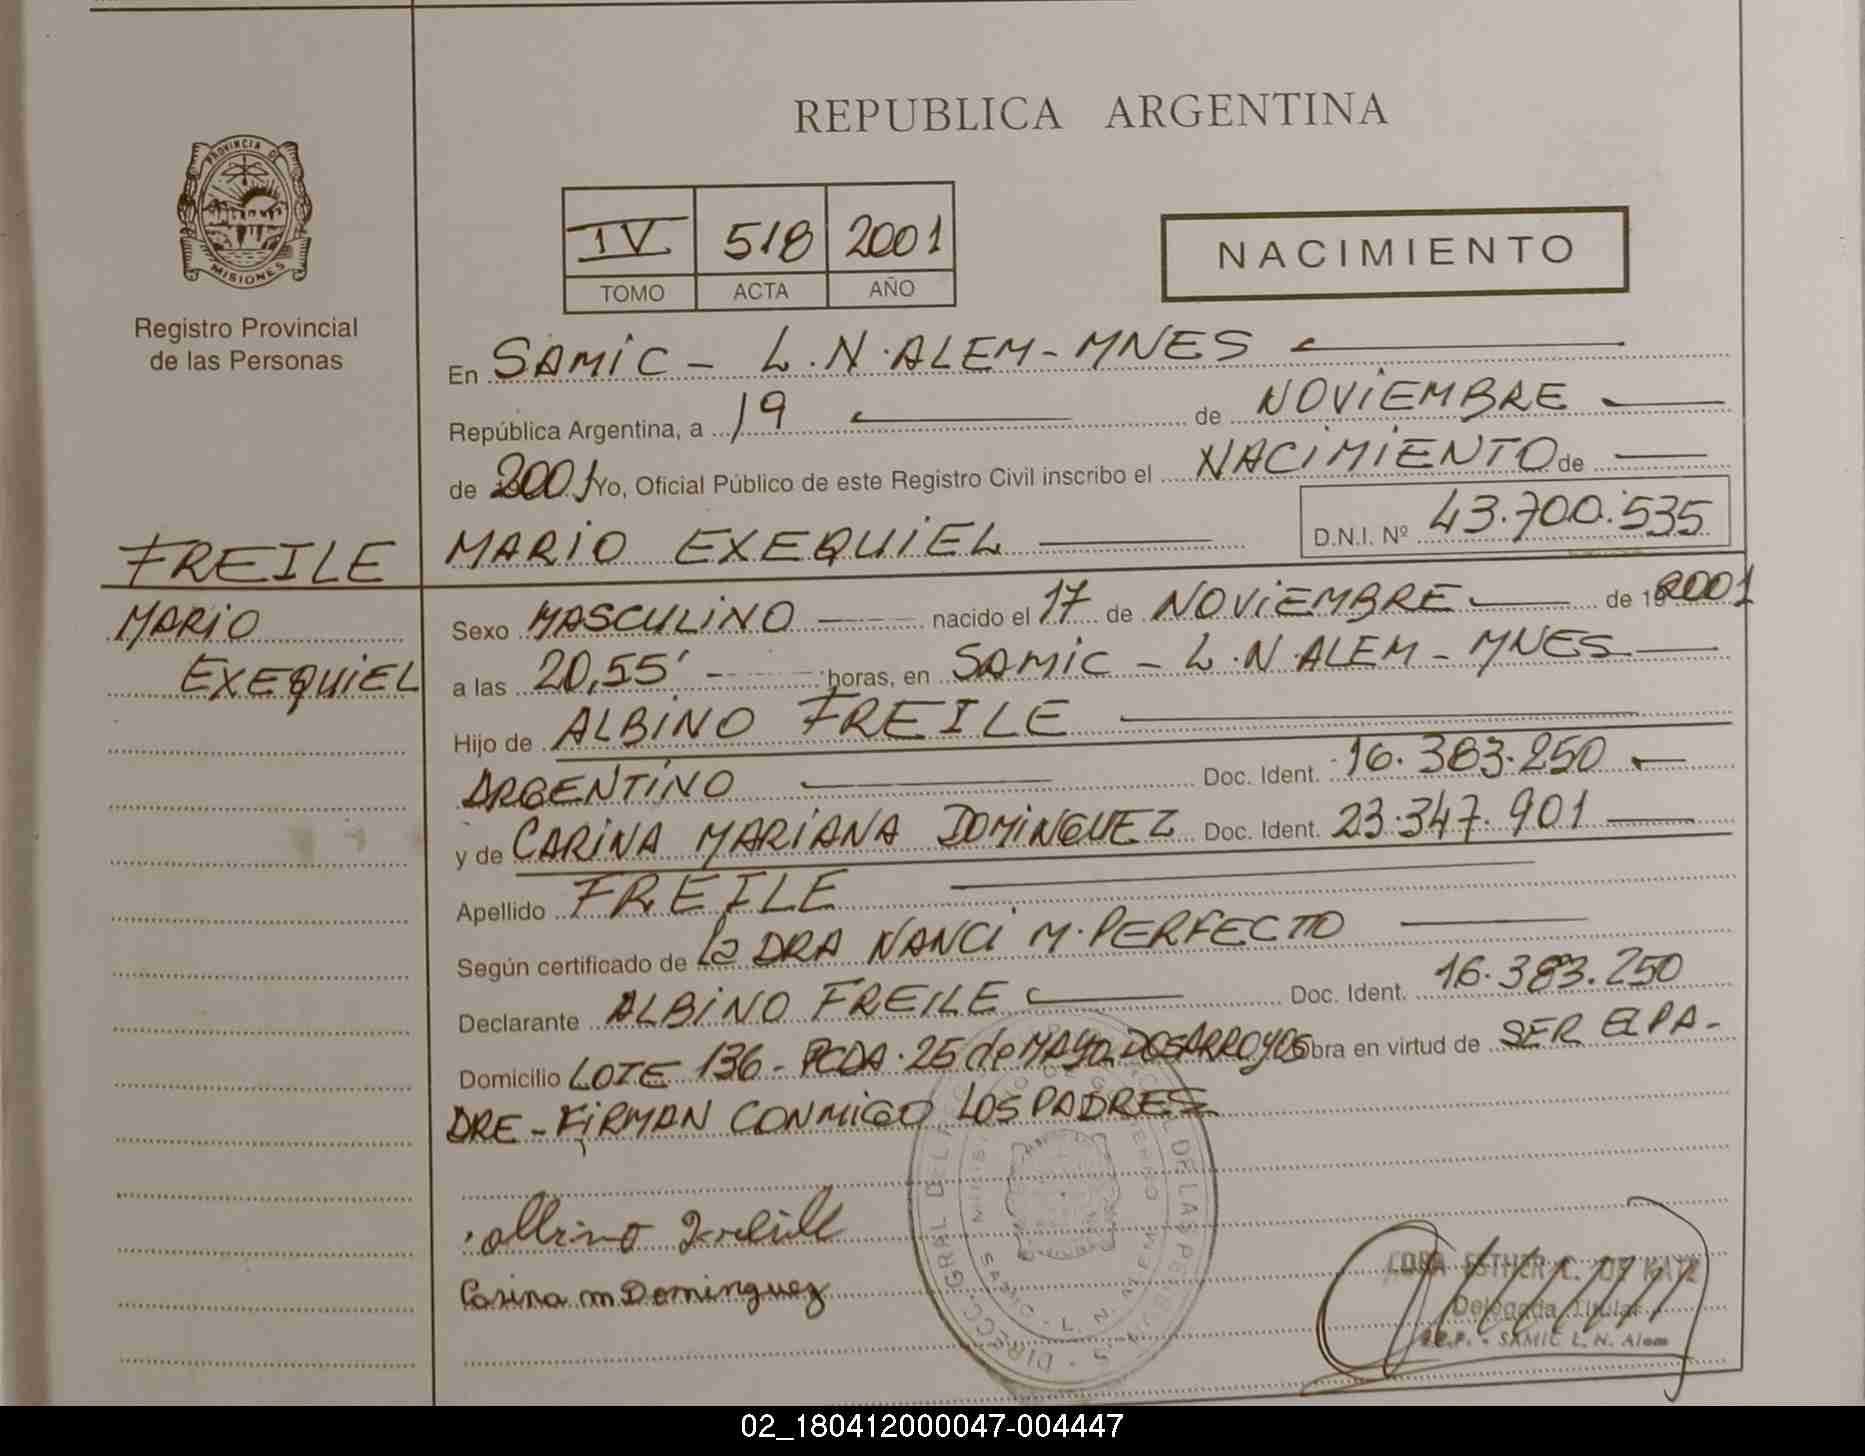 REPUBLICA ARGENTINA
PROVINCIA DE
MISIONES
Registro Provincial
de las Personas
IV 518 2001
TOMO ACTA AÑO
NACIMIENTO
En SAMIC - L.N. ALEM - MNES
República Argentina, a 19 de NOVIEMBRE
de 2001 Yo, Oficial Público de este Registro Civil inscribo el NACIMIENTO de
MARIO EXEQUIEL D.N.I. Nº 43.700.535
FREILE
MARIO
EXEQUIEL
Sexo MASCULINO nacido el 17 de NOVIEMBRE de 2001
a las 20,55' horas, en SAMIC - L.N. ALEM - MNES
Hijo de ALBINO FREILE
ARGENTINO Doc. Ident. 16.383.250
y de CARINA MARIANA DOMINGUEZ Doc. Ident. 23.347.901
Apellido FREILE
Según certificado de la DRA NANCI M. PERFECTO
Declarante ALBINO FREILE Doc. Ident. 16.383.250
Domicilio LOTE 136 - PCDA. 25 de MAYO DOSARROYOS bra en virtud de SER EL PA-
DRE - FIRMAN CONMIGO LOS PADRES
Albino Freile
Carina M Dominguez
ESTHER C. DE KATZ
Delegada Titular
R.P.P. - SAMIC L. N. Alem
02_180412000047-004447